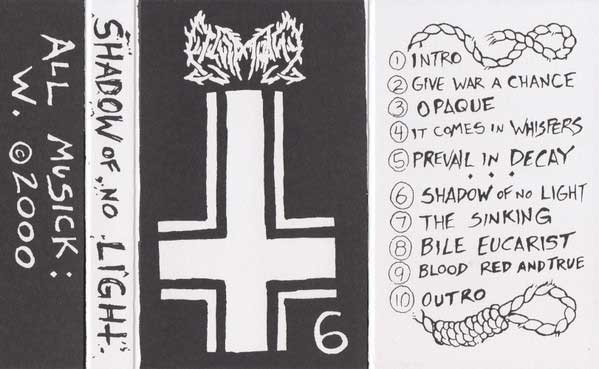 ALL MUSICK:
W. © 2000
SHADOW OF NO LIGHT.
6
1 INTRO
2 GIVE WAR A CHANCE
3 OPAQUE
4 IT COMES IN WHISPERS
5 PREVAIL IN DECAY
6 SHADOW OF NO LIGHT
7 THE SINKING
8 BILE EUCARIST
9 BLOOD RED AND TRUE
10 OUTRO